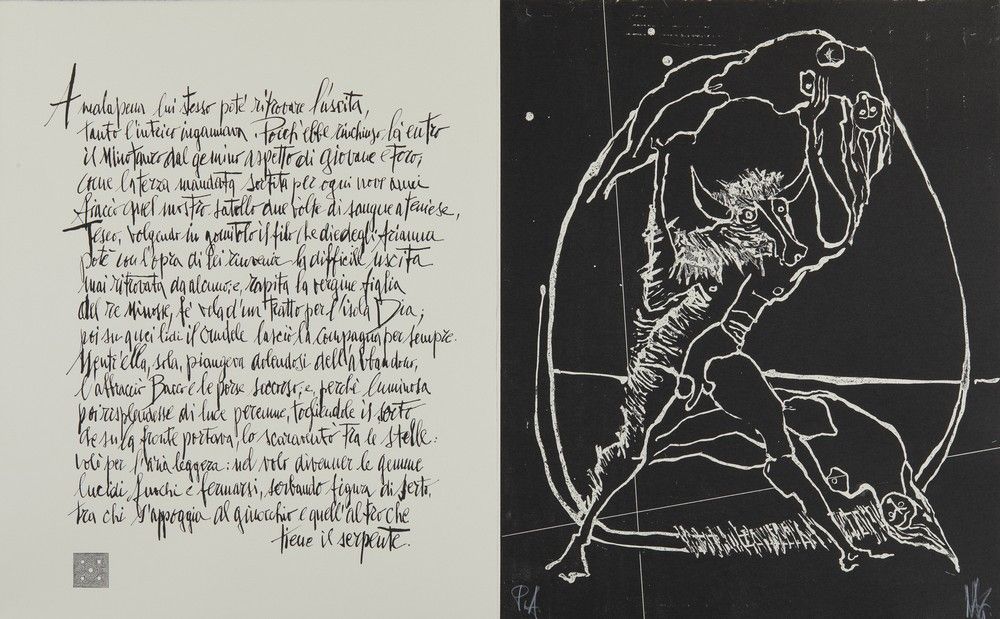 A malapena lui stesso poté ritrovare l'uscita,
tanto l'intrico ingannava. Poich'ebbe rinchiuso là entro
il Minotauro dal gemino aspetto di giovane e toro,
come la terza mandata sortita per ogni nove anni
fiaccò quel mostro satollo due volte di sangue ateniese,
Teseo, volgendo in gomitolo il filo che diedegli Arianna
poté con l'opra di lei rinvenir la difficile uscita
mai ritrovata da alcuno; e, rapita la vergine figlia
del re Minosse, fe' vela d'un tratto per l'isola Dia;
poi su quei lidi il crudele lasciò la compagna per sempre.
Mentr'ella, sola, piangeva dolendosi dell'abbandono,
l'abbracciò Bacco e le porse soccorso; e, perché luminosa
poi risplendesse di luce perenne, togliendole il serto
che sulla fronte portava, lo scaraventò tra le stelle:
volò per l'aria leggera: nel volo divenner le gemme
lucidi fuochi e fermarsi, serbando figura di serto,
tra chi s'appoggia al ginocchio e quell'altro che
tiene il serpente.
P.d.A.